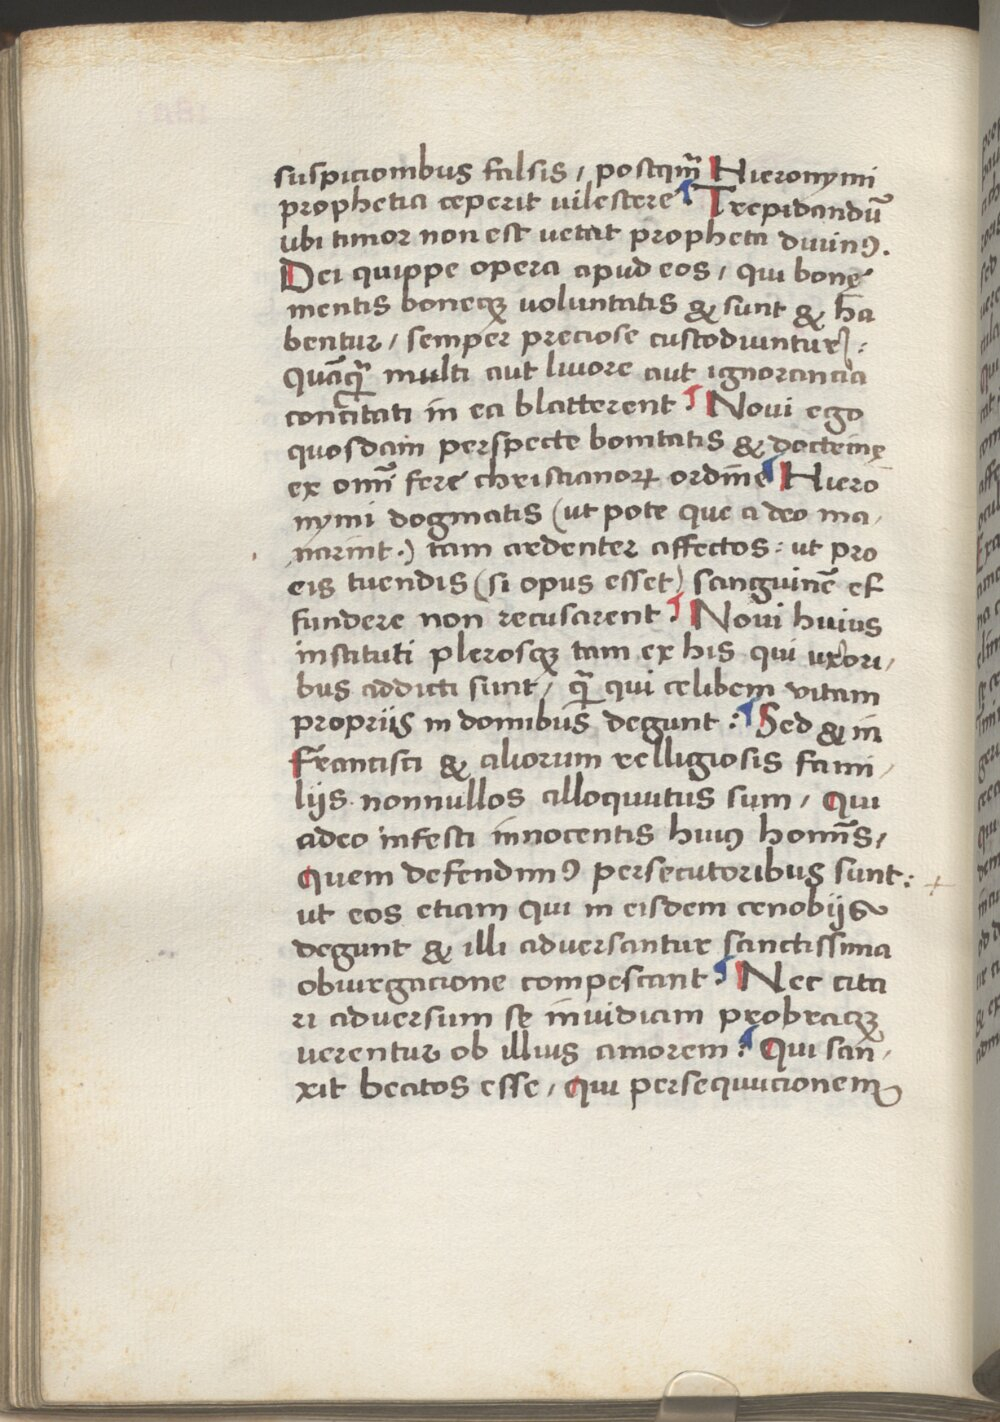 suspicionibus falsis / postqm̄ Hieronymi
prophetia ceperit uilescere ¶ Trepidandū
ubi timor non est uetat propheta diuinꝰ.
Dei quippe opera apud eos / qui bonę
mentis boneqꝫ uoluntatis & sunt & ha
bentur / semper preciose custodiuntur :
Quāqꝫ multi aut liuore aut ignorancia
concitati in ea blatterent ¶ Noui ego
quosdam perspecte bonitatis & doctrinę
ex omī fere christianoꝝ ordine ¶ Hiero
nymi dogmatis (ut pote que a deo ma/
narint.) tam ardenter affectos : ut pro
eis tuendis (si opus esset) sanguinē ef
fundere non recusarent ¶ Noui huius
instituti plerosqꝫ tam ex his qui uxori/
bus addicti sunt / q̄ qui celibem vitam
propriis in domibus degunt : ¶ Sed & in
Francisci & aliorum relligiosis fami/
lijs nonnullos alloquutus sum / Qui
adeo infesti innocentis huiꝰ homīs /
Quem defendimꝰ persecutoribus sunt :
ut eos etiam qui in eisdem cenobijs
degunt & illi aduersantur sanctissima
obiurgacione compescant ¶ Nec cita
ri aduersum se inuidiam probraqꝫ
uerentur ob illius amorem : ¶ Qui san/
xit beatos esse / Qui persequucionem